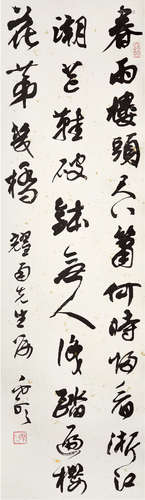 春雨樓頭尺八簫何時歸看浙江
潮芒鞋破缽無人識踏過櫻
花第幾橋
耀南先生屬